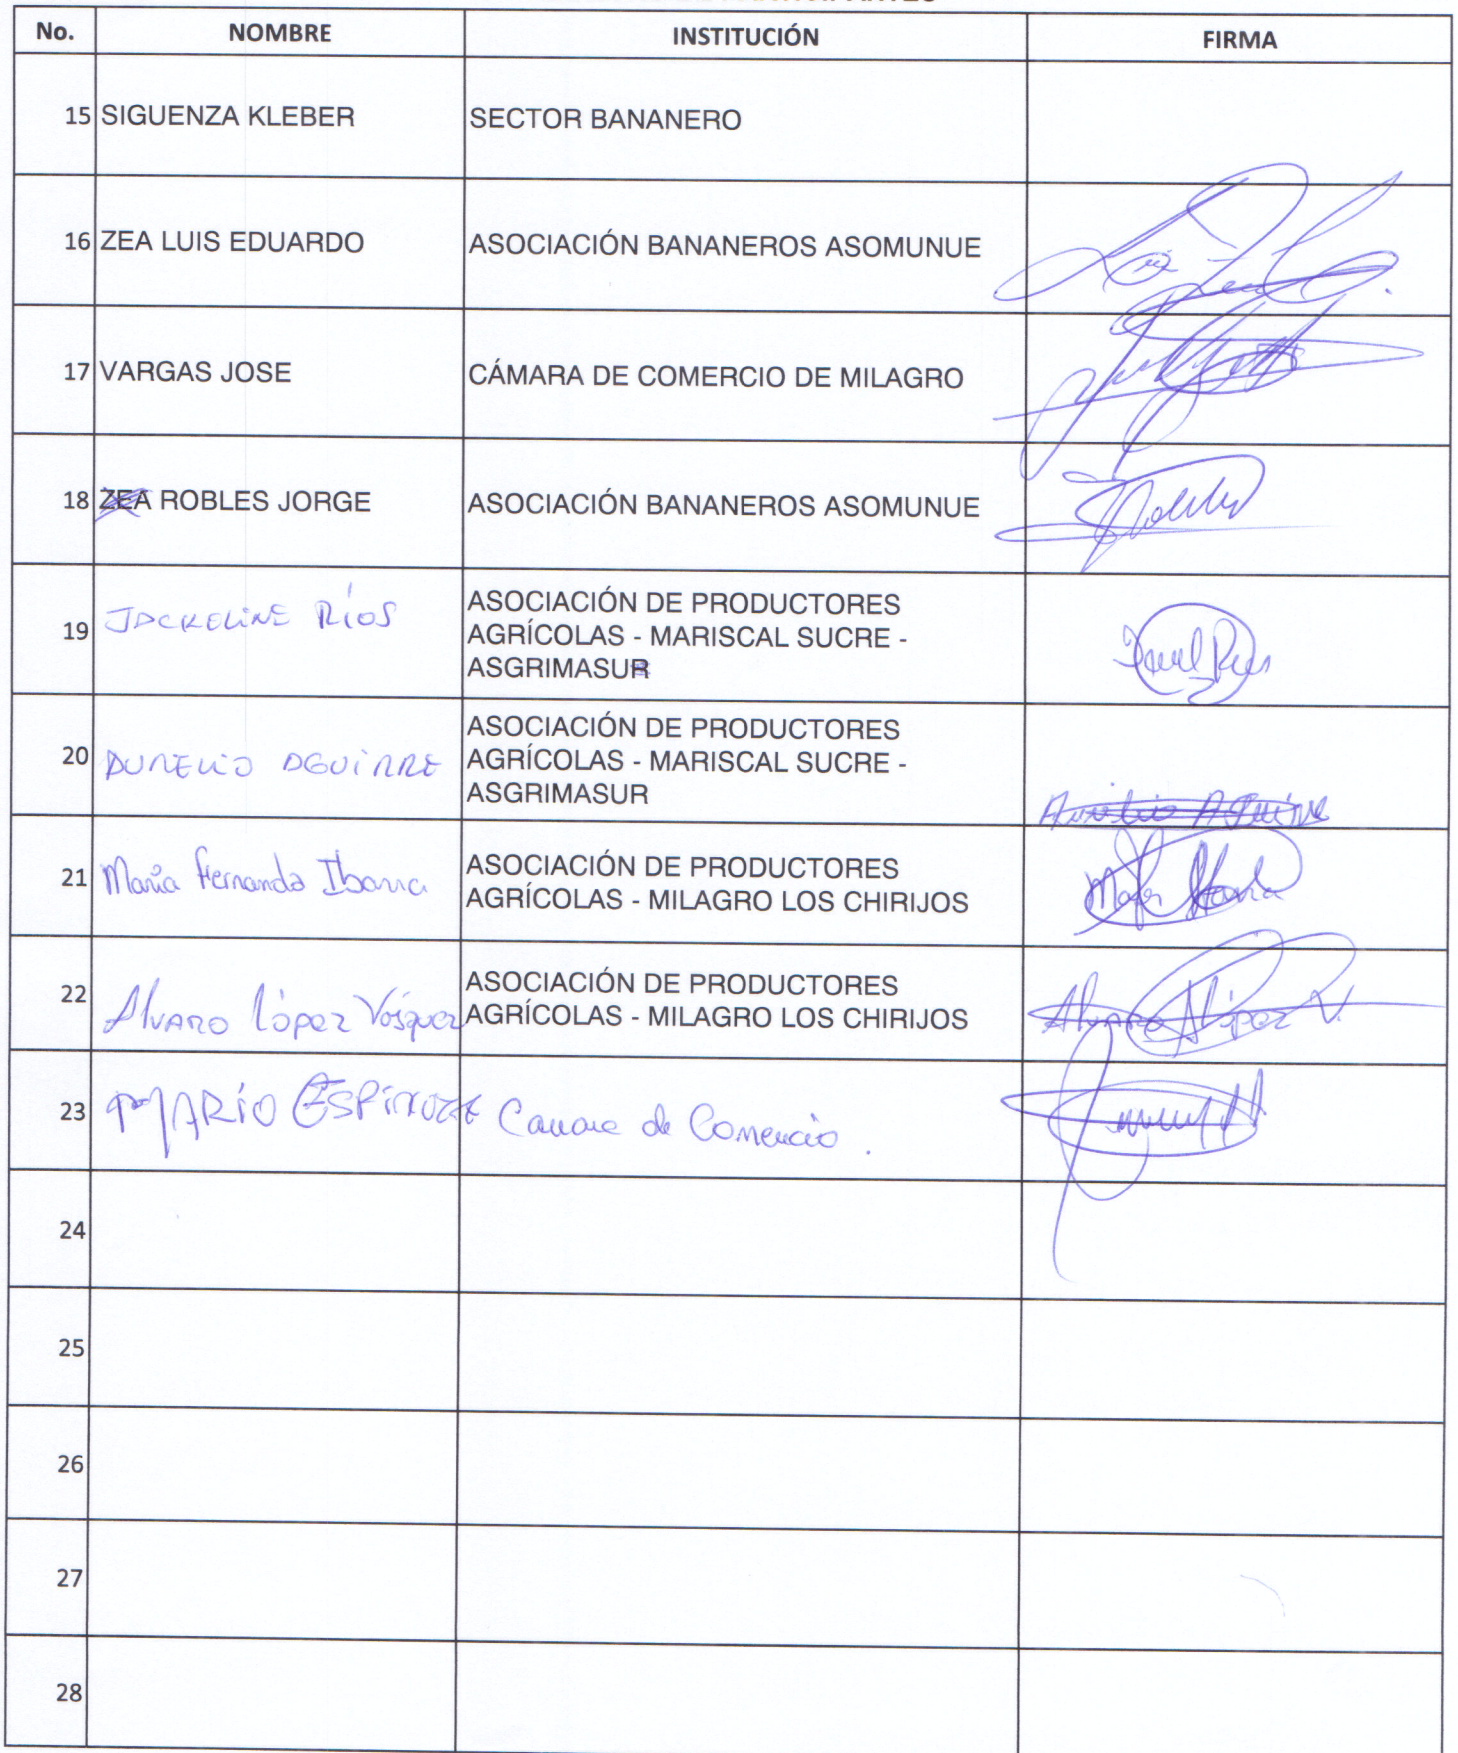 No. NOMBRE INSTITUCIÓN FIRMA
15 SIGUENZA KLEBER SECTOR BANANERO
16 ZEA LUIS EDUARDO ASOCIACIÓN BANANEROS ASOMUNUE
17 VARGAS JOSE CÁMARA DE COMERCIO DE MILAGRO
18 ZEA ROBLES JORGE ASOCIACIÓN BANANEROS ASOMUNUE
19 JACKELINE RÍOS
ASOCIACIÓN DE PRODUCTORES
AGRÍCOLAS - MARISCAL SUCRE -
ASGRIMASUR
20 AURELIO AGUIRRE
ASOCIACIÓN DE PRODUCTORES
AGRÍCOLAS - MARISCAL SUCRE -
ASGRIMASUR
Aurelio Aguirre
21 María Fernanda Ibarra
ASOCIACIÓN DE PRODUCTORES
AGRÍCOLAS - MILAGRO LOS CHIRIJOS
22 Alvaro López Vásquez
ASOCIACIÓN DE PRODUCTORES
AGRÍCOLAS - MILAGRO LOS CHIRIJOS
Alvaro López V.
23 MARIO ESPINOZA Camara de Comercio.
24
25
26
27
28